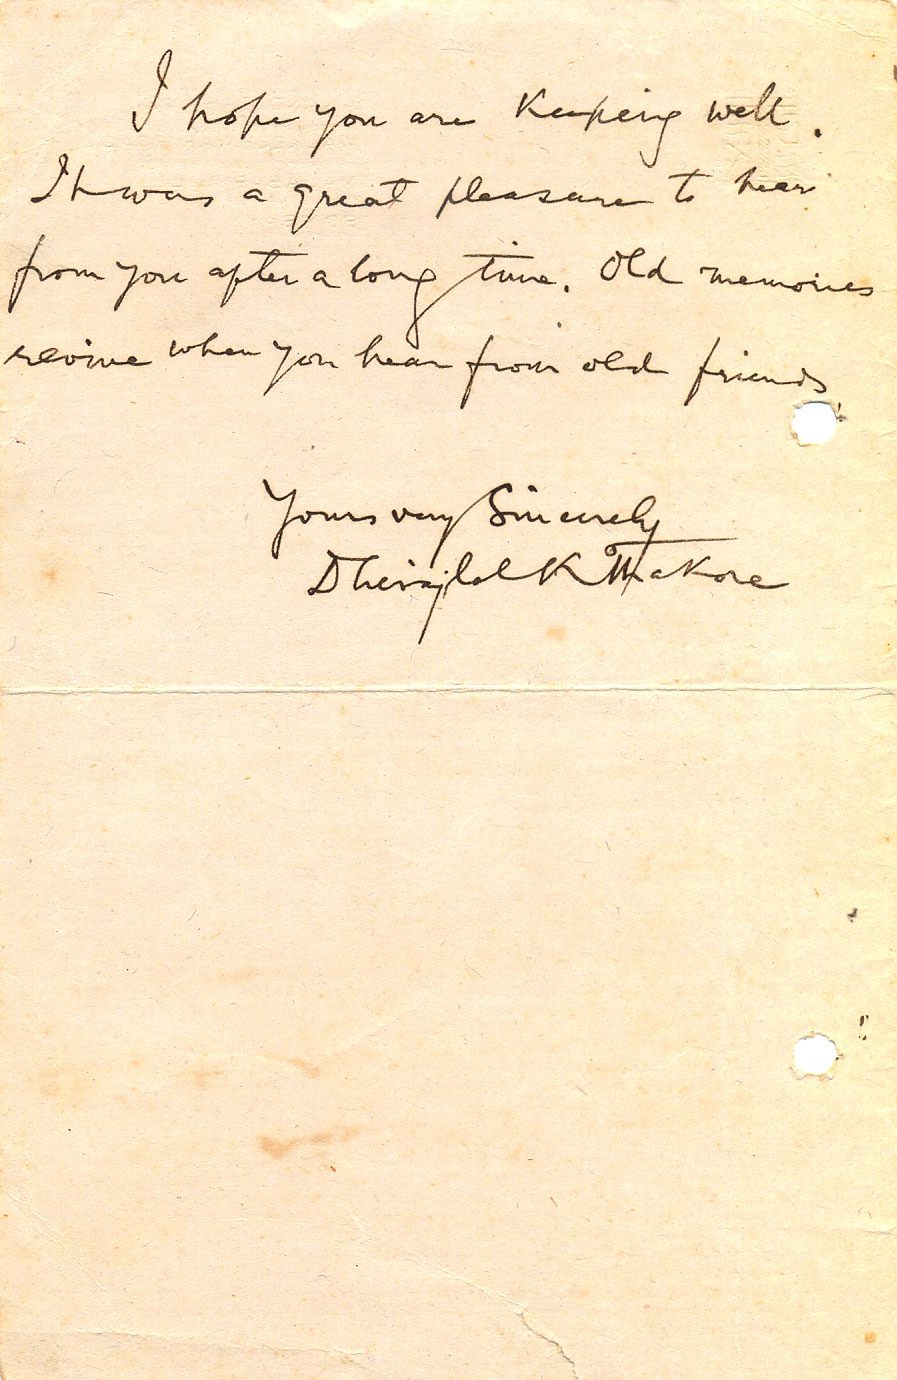 I hope you are Keeping well.
It was a great pleasure to hear
from you after a long time. Old memories
revive when you hear from old friends
Yours very Sincerely
Dhirajlal K Thakore